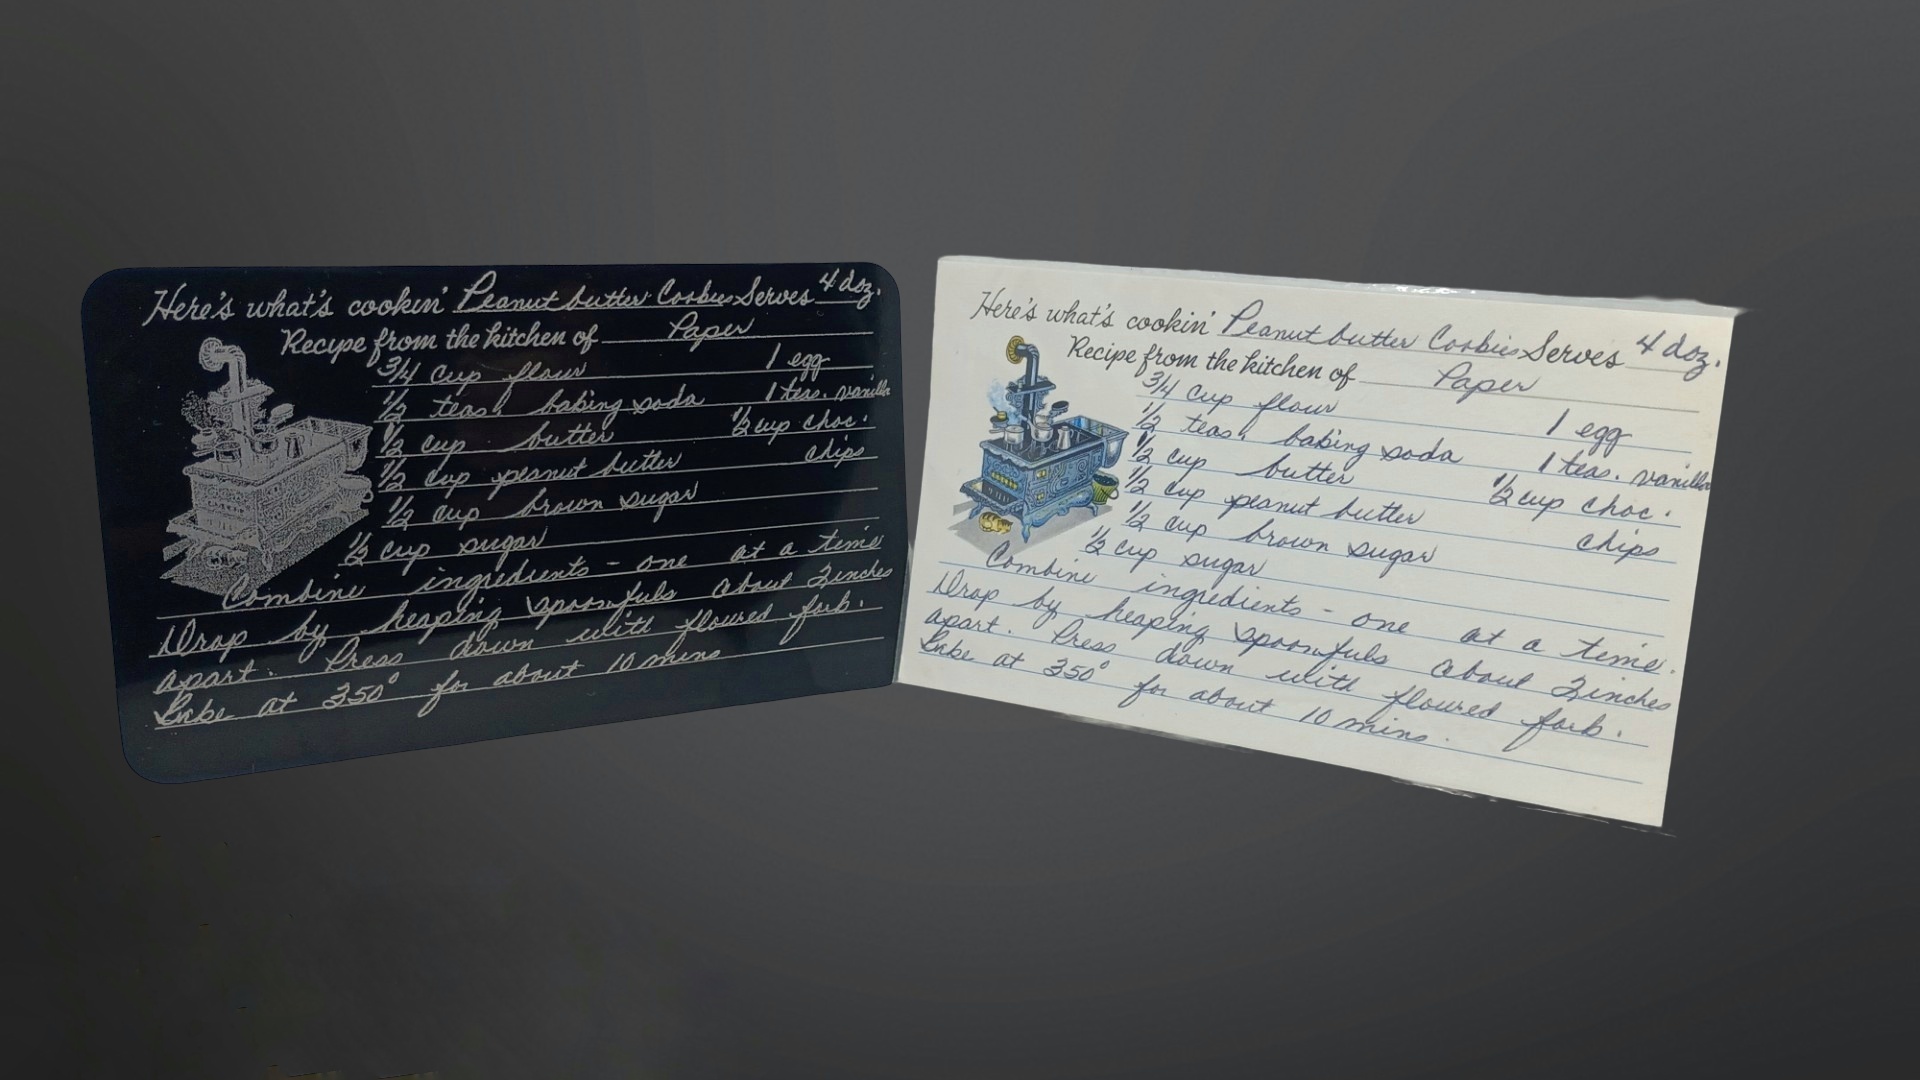 Here's what's cookin' Peanut butter Cookies Serves 4 doz.
Recipe from the kitchen of Paper
3/4 cup flour 1 egg
1/2 teas. baking soda 1 teas. vanilla
1/2 cup butter 1/2 cup choc.
1/2 cup peanut butter chips
1/2 cup brown sugar
1/2 cup sugar
Combine ingredients - one at a time
Drop by heaping spoonfuls about 2 inches
apart. Press down with floured fork.
Bake at 350° for about 10 mins
Here's what's cookin' Peanut butter Cookies Serves 4 doz.
Recipe from the kitchen of Paper
3/4 cup flour 1 egg
1/2 teas. baking soda 1 teas. vanilla
1/2 cup butter 1/2 cup choc.
1/2 cup peanut butter chips
1/2 cup brown sugar
1/2 cup sugar
Combine ingredients - one at a time.
Drop by heaping spoonfuls about 2 inches
apart. Press down with floured fork.
Bake at 350° for about 10 mins.